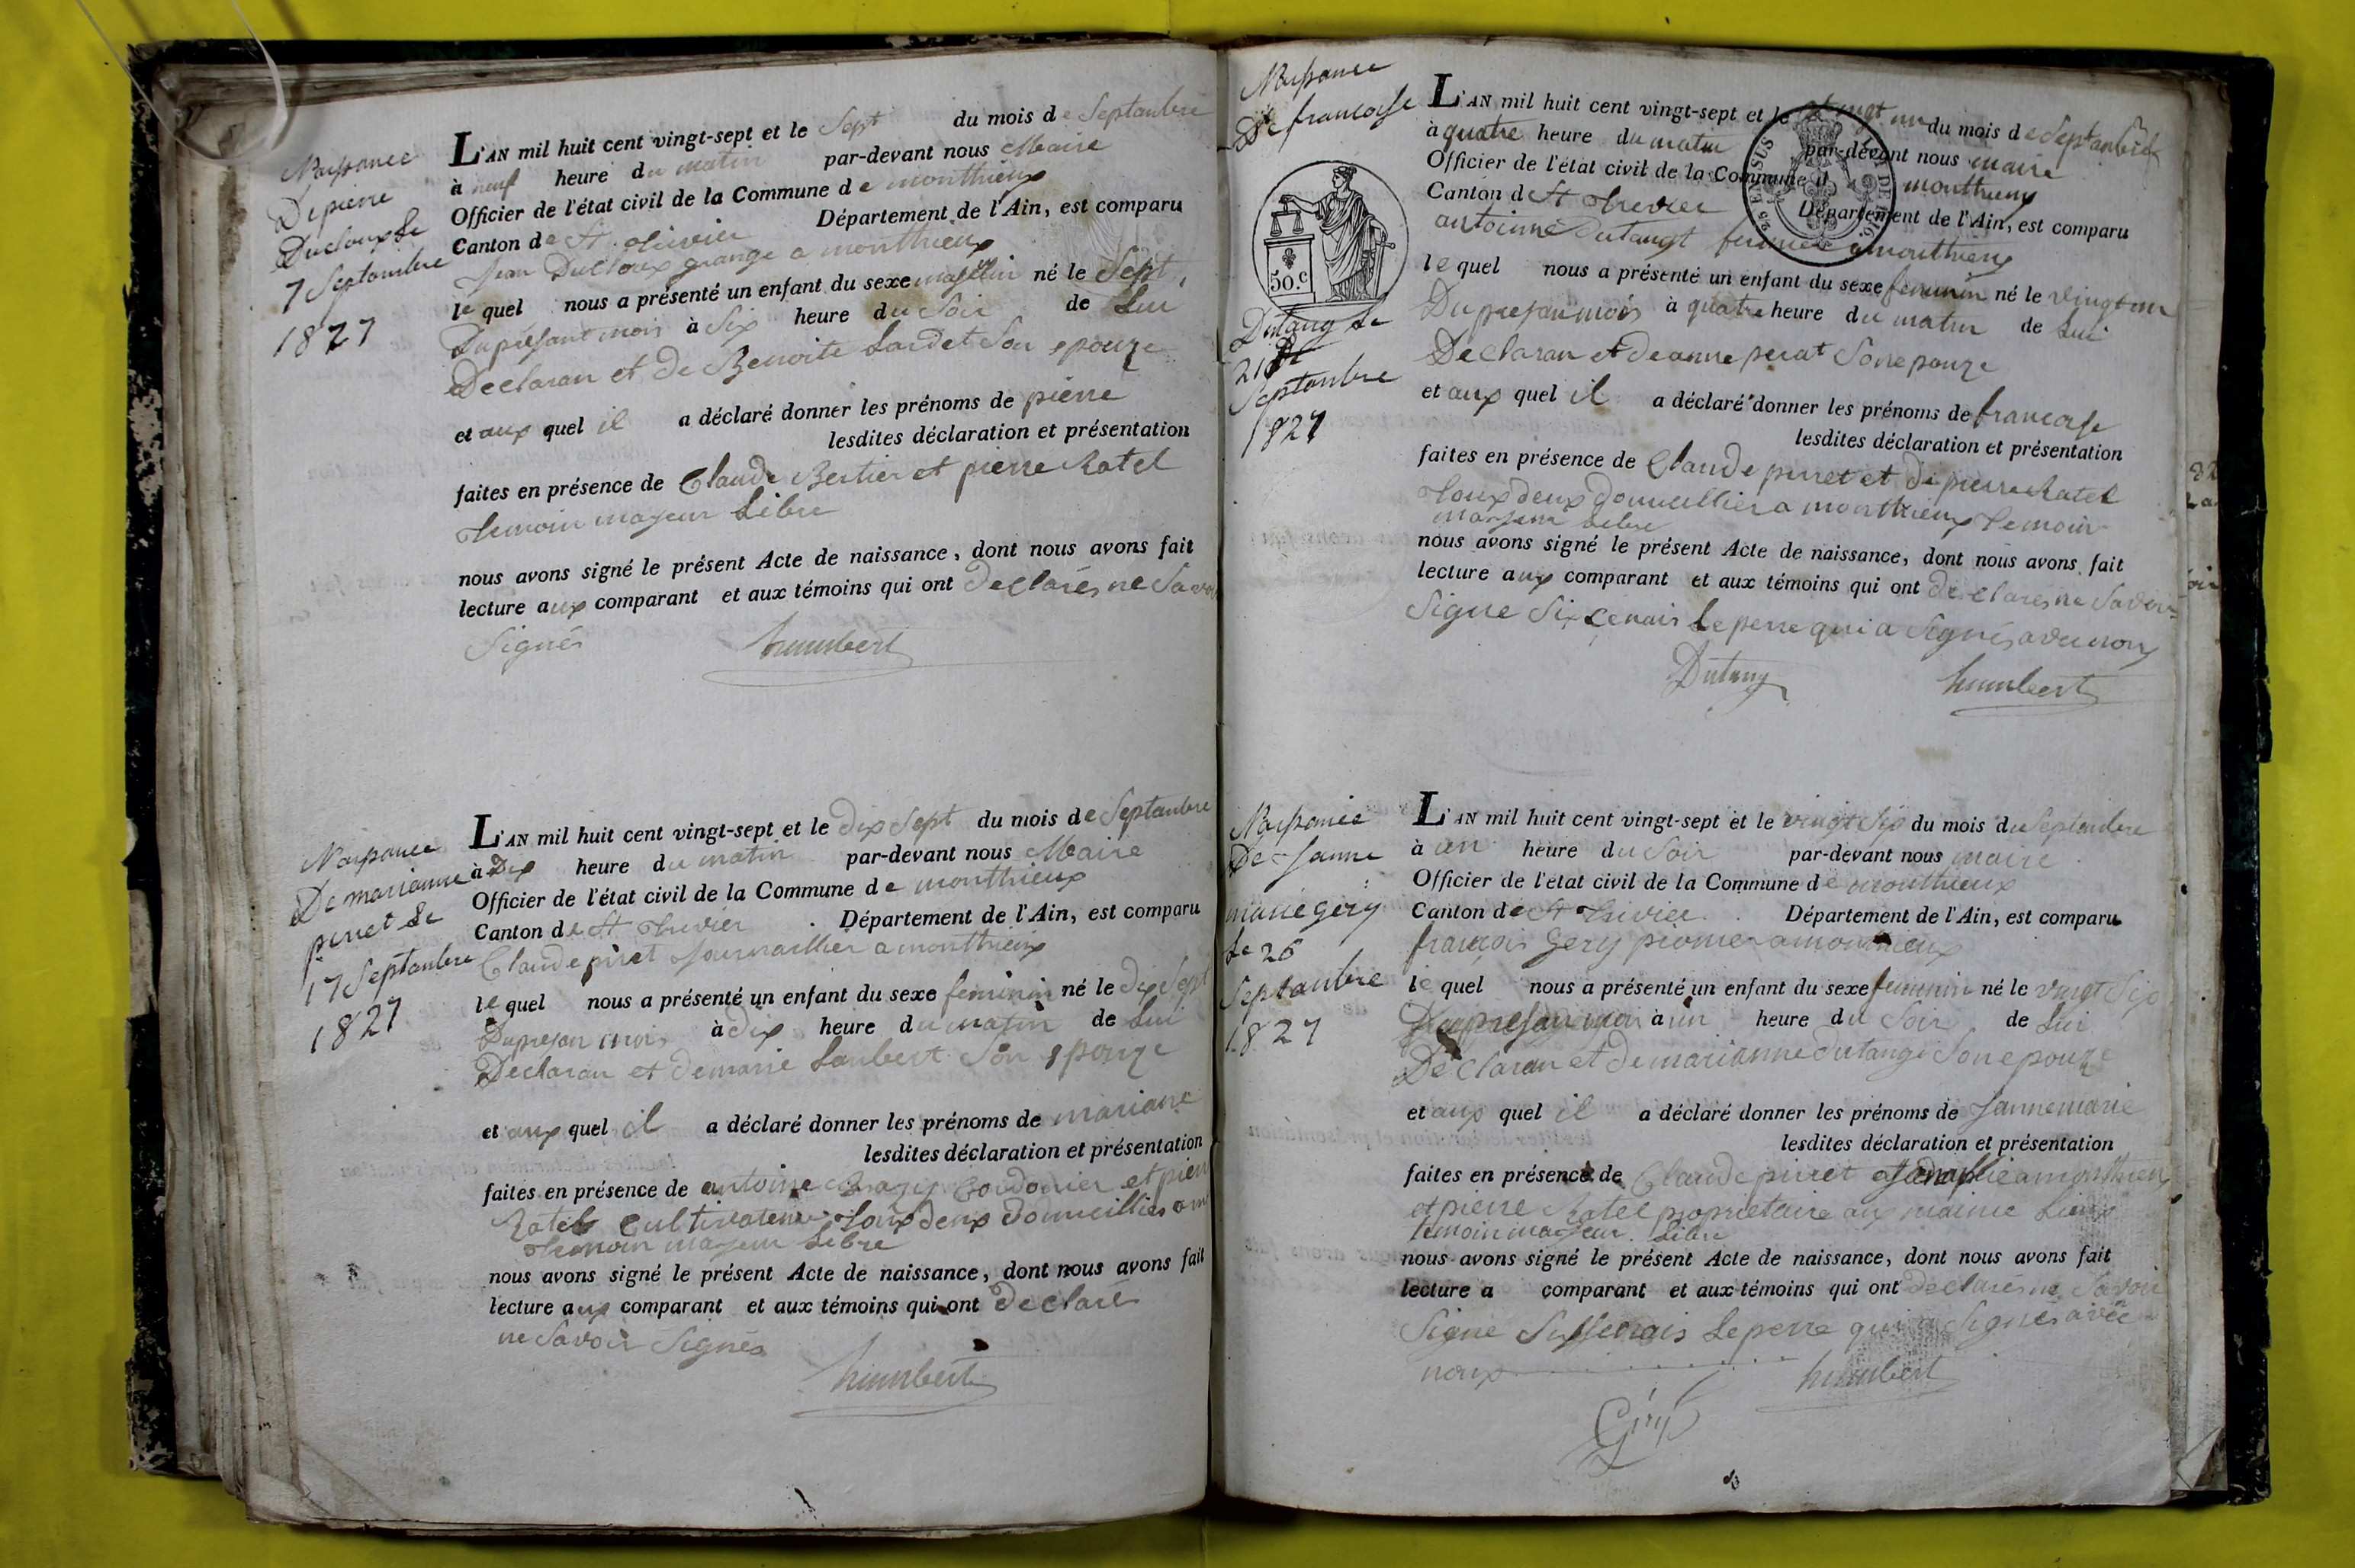 Naissance
De pierre
Ducloux Le
7 Septambre
1827
L'AN mil huit cent vingt-sept et le Sept du mois de Septambre
à neuf heure du matin par-devant nous Maire
Officier de l'état civil de la Commune de monthieux
Canton de St. Trivier Département de l'Ain, est comparu
Jean Ducloux grangé a monthieux
lequel nous a présenté un enfant du sexe né le Sept
Du présant mois à Six heure du Soir de Lui
Declaran et de Benoite Lardet Son epouze
et aux quel il a déclaré donner les prénoms de pierre
lesdites déclaration et présentation
faites en présence de Claude Bertier et pierre Ratel
Temoin majeur Libre
nous avons signé le présent Acte de naissance, dont nous avons fait
lecture aux comparant et aux témoins qui ont Declarés ne Savoir
Signés humbert
Naissance
De marianne
pirret Le
17 Septambre
1827
L'AN mil huit cent vingt-sept et le Dix Sept du mois de Septambre
à Dix heure du matin par-devant nous Maire
Officier de l'état civil de la Commune de monthieux
Canton de St Trivier Département de l'Ain, est comparu
Claude piret Journaillier a monthieux
lequel nous a présenté un enfant du sexe feminin né le Dix Sept
Du presan mois à dix heure du matin de Lui
Declaran et de marie Laubert Son epouze
et aux quel il a déclaré donner les prénoms de mariane
lesdites déclaration et présentation
faites en présence de antoine Cordonier et pierre
Ratel Cultivateur Toux deux Domicillies a
Temoin majeur Libre
nous avons signé le présent Acte de naissance, dont nous avons fait
lecture aux comparant et aux témoins qui ont Declaré
ne Savoir Signés
humbert
Naissance
De francoise
50.c
Dutang Le
21
Septambre
1827
L'AN mil huit cent vingt-sept et le vingt un du mois de Septambre
à quatre heure du matin par-devant nous maire
Officier de l'état civil de la Commune d monthieux
Canton de St Trivier Département de l'Ain, est comparu
antoine Dutangt fermier a monthieux
lequel nous a présenté un enfant du sexe feminin né le vingt un
Du presan mois à quatre heure du matin de Lui
Declaran et de anne perat Son epouze
et aux quel il a déclaré donner les prénoms de francoise
lesdites déclaration et présentation
faites en présence de Claude pirret et de pierre Ratel
Toux deux Domicillier a monthieux Temoin
majeur Libre
nous avons signé le présent Acte de naissance, dont nous avons fait
lecture aux comparant et aux témoins qui ont declares ne Savoir
Signe Le perre qui a Signés avec nous
Dutang humbert
Naissance
De Janne
marie gery
Le 26
Septambre
1827
L'AN mil huit cent vingt-sept et le vingt Six du mois du Septembre
à un heure du Soir par-devant nous maire
Officier de l'état civil de la Commune de monthieux
Canton de St Trivier Département de l'Ain, est comparu
françois Gery a monthieux
lequel nous a présenté un enfant du sexe feminin né le vingt Six
Du presan mois à un heure du Soir de Lui
Declaran et de marianne Dutange Son epouze
et aux quel il a déclaré donner les prénoms de Jannemarie
lesdites déclaration et présentation
faites en présence de Claude pirret a monthieu
et pierre Ratel propriétaire au maime Lieux
Temoin majeur Libre
nous avons signé le présent Acte de naissance, dont nous avons fait
lecture a comparant et aux témoins qui ont declarés ne Savoir
Signe Le perre qui a Signés avec
noux humbert
Gery